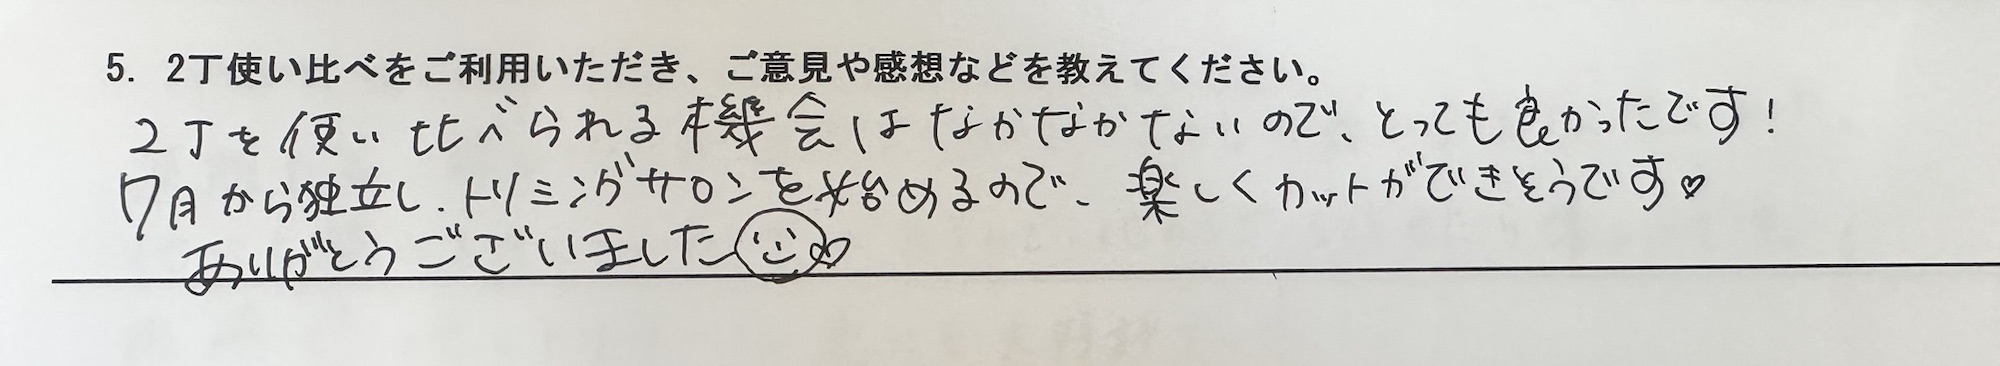 5. 2丁使い比べをご利用いただき、ご意見や感想などを教えてください。
2丁を使い比べられる機会はなかなかないので、とっても良かったです!
7月から独立し、トリミングサロンを始めるので、楽しくカットができそうです♡
ありがとうございました☺♡